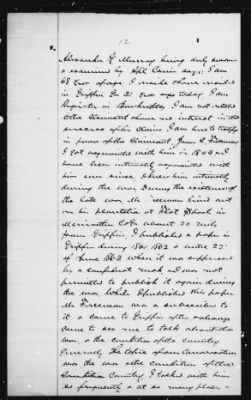 12
Alexander G Murray being duly sworn
& examined by Spl Com says: I am
68 years of age I reside
in Griffin Ga 21 years ago today I am
Register in Bankruptcy I am not related
to the Claimant & have no interest in the
success of his claim I am here to testify
in favor of the Claimant John C
I got acquainted with him in 1848 and
have been intimately acquainted with
him ever since I knew him intimately
during the war. During the existence of
the late war Mr Freeman lived out
on his plantation at School in
Meriwether Co Ga about 20 miles
from Griffin, I published a paper in
Griffin during 1861 1862 & until 22d
of June 1863 when it was suppressed
by a confederate mob and was not
permitted to publish it again during
the war While I published this paper
Mr Freeman was a subscriber to
it & came to Griffin often & always
came to see me to talk about the
war, & the condition of the Country
Generally The topic of our Conversation
was the war & the condition of the
Country I talked with him
so frequently & at so many places